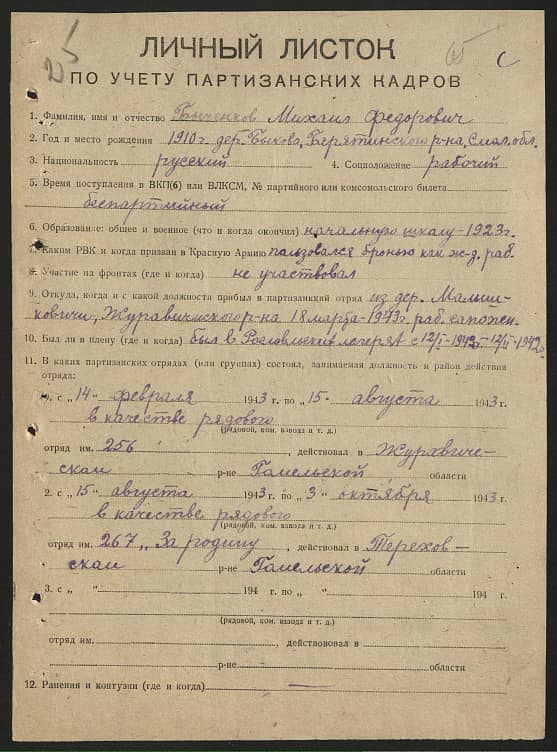 ЛИЧНЫЙ ЛИСТОК
ПО УЧЕТУ ПАРТИЗАНСКИХ КАДРОВ
1. Фамилия, имя и отчество Быченков Михаил Федорович
2. Год и место рождения 1910 г. дер. Быкова, Берятинского р-на, Смол. обл.
3. Национальность русский 4. Соцположение рабочий
5. Время поступления в ВКП(б) или ВЛКСМ, № партийного или комсомольского билета
беспартийный
6. Образование: общее и военное (что и когда окончил) начальную школу - 1923 г.
7. Каким РВК и когда призван в Красную Армию пользовался бронью как ж-д. раб.
8. Участие на фронтах (где и когда) не участвовал
9. Откуда, когда и с какой должности прибыл в партизанский отряд из дер. Малиш-
ковичи, Журавичского р-на 18 марта-1943 г. раб. сапожн.
10. Был ли в плену (где и когда) был в Рославльских лагерях с 12/I-1942г-12/II-1942г.
11. В каких партизанских отрядах (или группах) состоял, занимаемая должность и район действия
отряда:
1. с „14" февраля 1943 г. по „15" августа 1943 г.
в качестве рядового
(рядовой, ком. взвода и т. д.)
отряд им. 256, действовал в Журавиче-
ском р-не Гомельской области
2. с „15" августа 1943 г. по „3" октября 1943 г.
в качестве рядового
(рядовой, ком. взвода и т. д.)
отряд им. 267 „За родину, действовал в Терехов-
ском р-не Гомельской области
3. с „ " 194 г. по „ " 194 г.
(рядовой, ком. взвода и т. д.)
отряд им., действовал в
р-не области
12. Ранения и контузии (где и когда) —